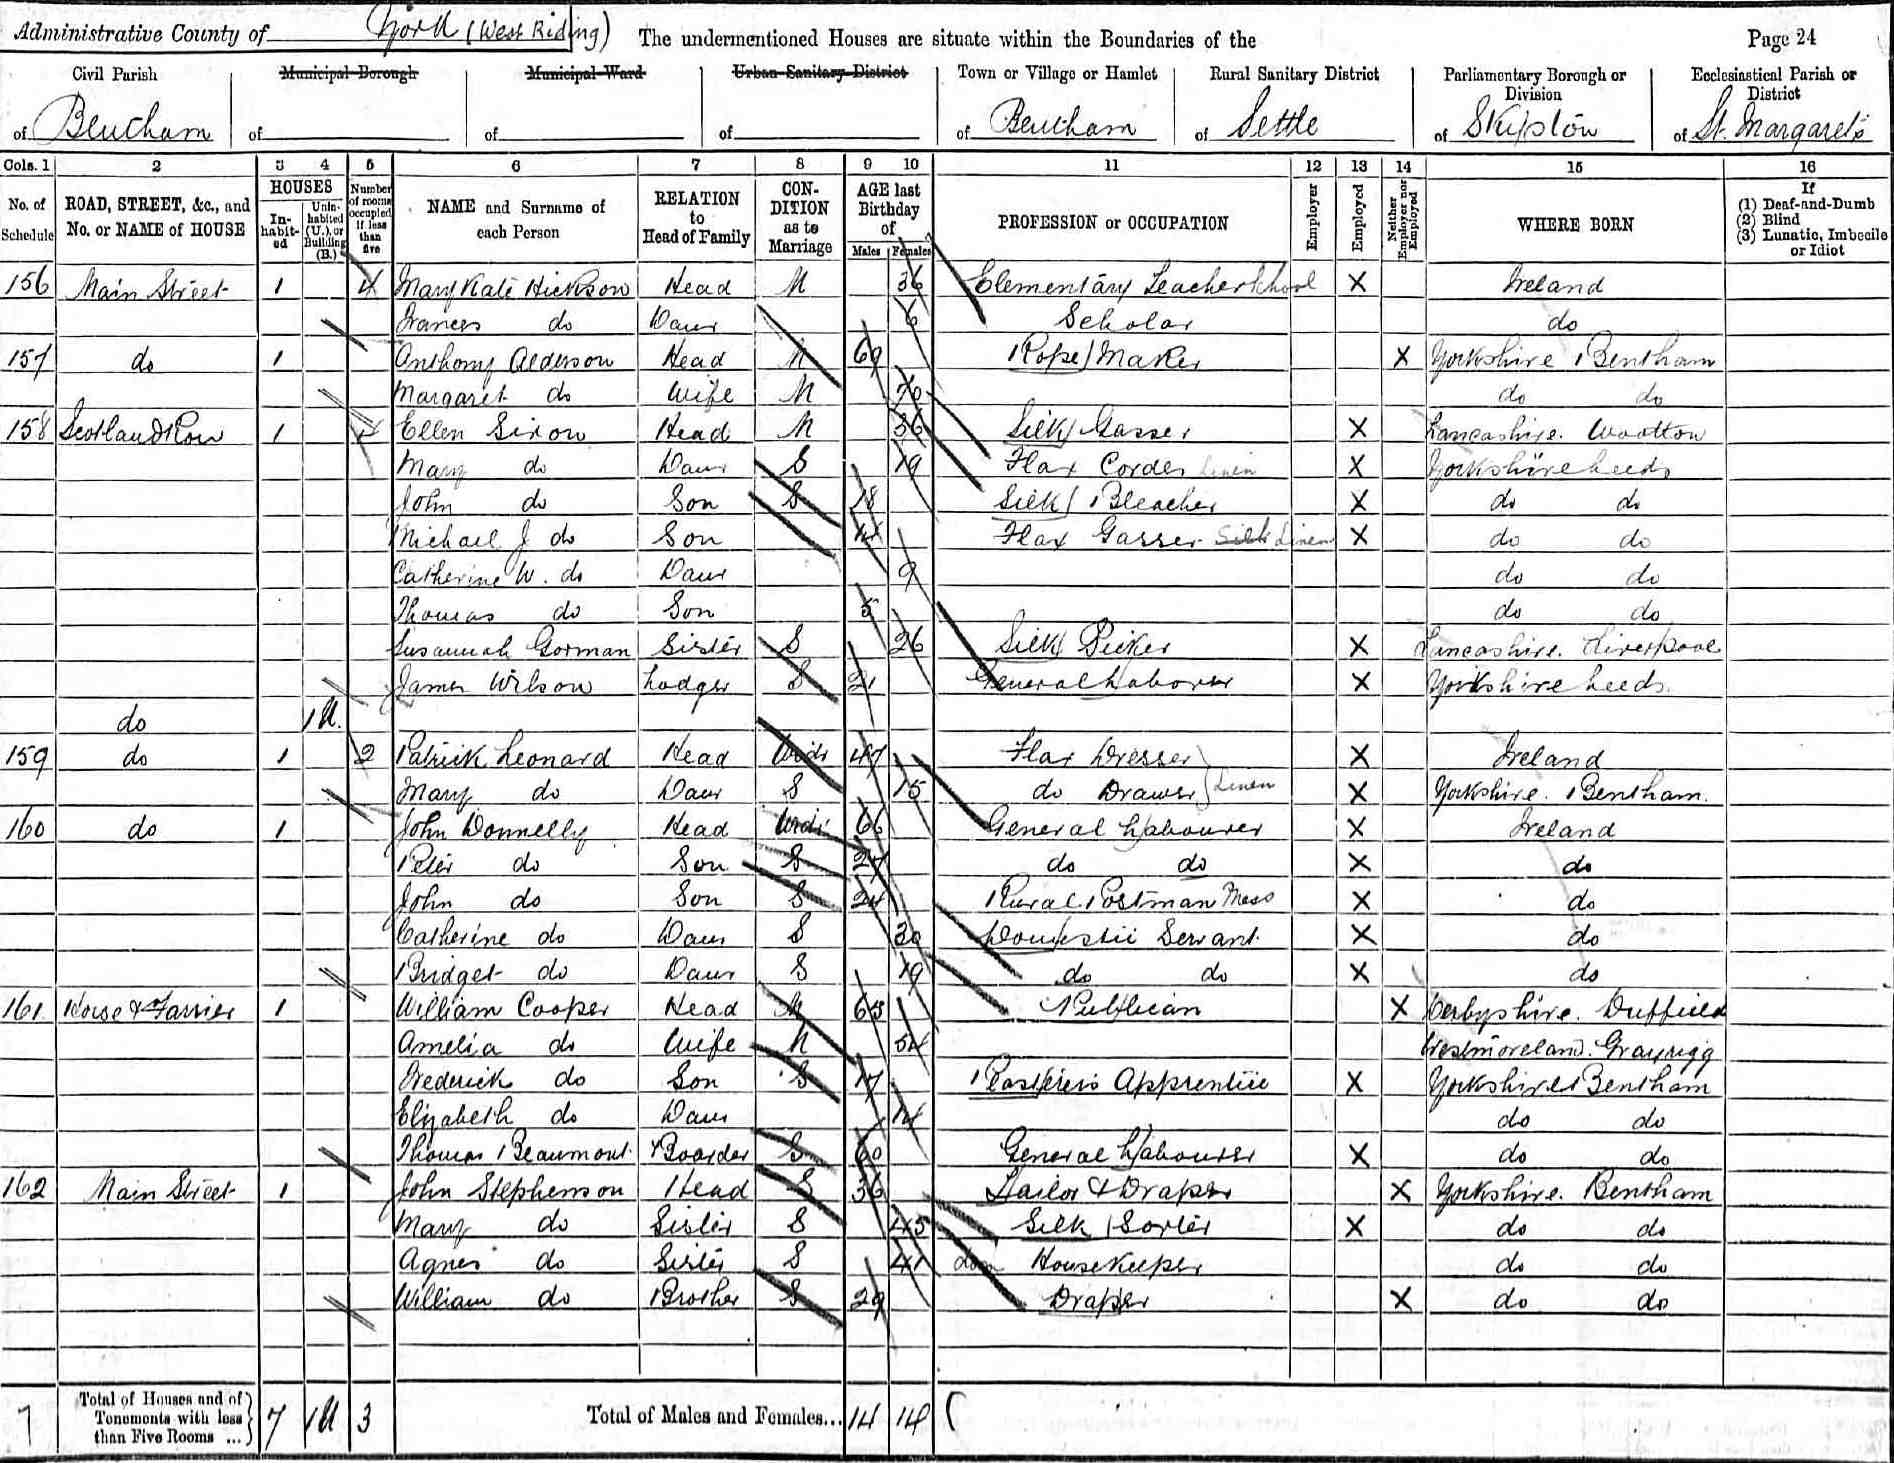 Administrative County of York (West Riding) The undermentioned Houses are situate within the Boundaries of the Page 24
Civil Parish Municipal Borough Municipal Ward Urban Sanitary District Town or Village or Hamlet Rural Sanitary District Parliamentary Borough or Division Ecclesiastical Parish or District
of Bentham of of of of Bentham of Settle of Skipton of St. Margaret's
Cols. 1 2 3 4 5 6 7 8 9 10 11 12 13 14 15 16
No. of Schedule ROAD, STREET, &c., and No. or NAME of HOUSE HOUSES In-habit-ed Unin-habited (U.), or Building (B.) Number of rooms occupied if less than five NAME and Surname of each Person RELATION to Head of Family CON-DITION as to Marriage AGE last Birthday of Males Females PROFESSION or OCCUPATION Employer Employed Neither Employer nor Employed WHERE BORN If (1) Deaf-and-Dumb (2) Blind (3) Lunatic, Imbecile or Idiot
156 Main Street 1 4 Mary Kate Hickson Head M 36 Elementary Teacher School X Ireland
Frances do Daur 6 Scholar do
157 do 1 Anthony Alderson Head M 69 Rope Maker X Yorkshire Bentham
Margaret do Wife M 70 do do
158 Scotland Row 1 4 Ellen Sixon Head M 36 Silk Gasser X Lancashire. Wootton
Mary do Daur S 19 Flax Corder Linen X Yorkshire Leeds
John do Son S 18 Silk Bleacher X do do
Michael J do Son 14 Flax Gasser Silk Linen X do do
Catherine W. do Daur 9 do do
Thomas do Son 5 do do
Susannah Gorman Sister S 26 Silk Picker X Lancashire. Liverpool
James Wilson Lodger S 21 General Laborer X Yorkshire Leeds.
do 1 U.
159 do 1 2 Patrick Leonard Head Widr 47 Flax Dresser X Ireland
Mary do Daur S 15 do Drawer Linen X Yorkshire. Bentham.
160 do 1 John Donnelly Head Widr 66 General Labourer X Ireland
Peter do Son S 27 do do X do
John do Son S 24 Rural Postman Mess X do
Catherine do Daur S 30 Domestic Servant X do
Bridget do Daur S 19 do do X do
161 Horse & Farrier 1 William Cooper Head M 63 Publican X Derbyshire. Duffield
Amelia do Wife M 54 Westmoreland. Grayrigg
Frederick do Son S 17 Plasterers Apprentice X Yorkshire Bentham
Elizabeth do Daur 14 do do
Thomas Beaumont Boarder S 60 General Labourer X do do
162 Main Street 1 John Stephenson Head S 36 Tailor & Draper X Yorkshire. Bentham
Mary do Sister S 45 Silk Sorter X do do
Agnes do Sister S 41 dom Housekeeper do do
William do Brother S 29 Draper X do do
7 Total of Houses and of Tenements with less than Five Rooms ... 7 1U 3 Total of Males and Females... 14 14